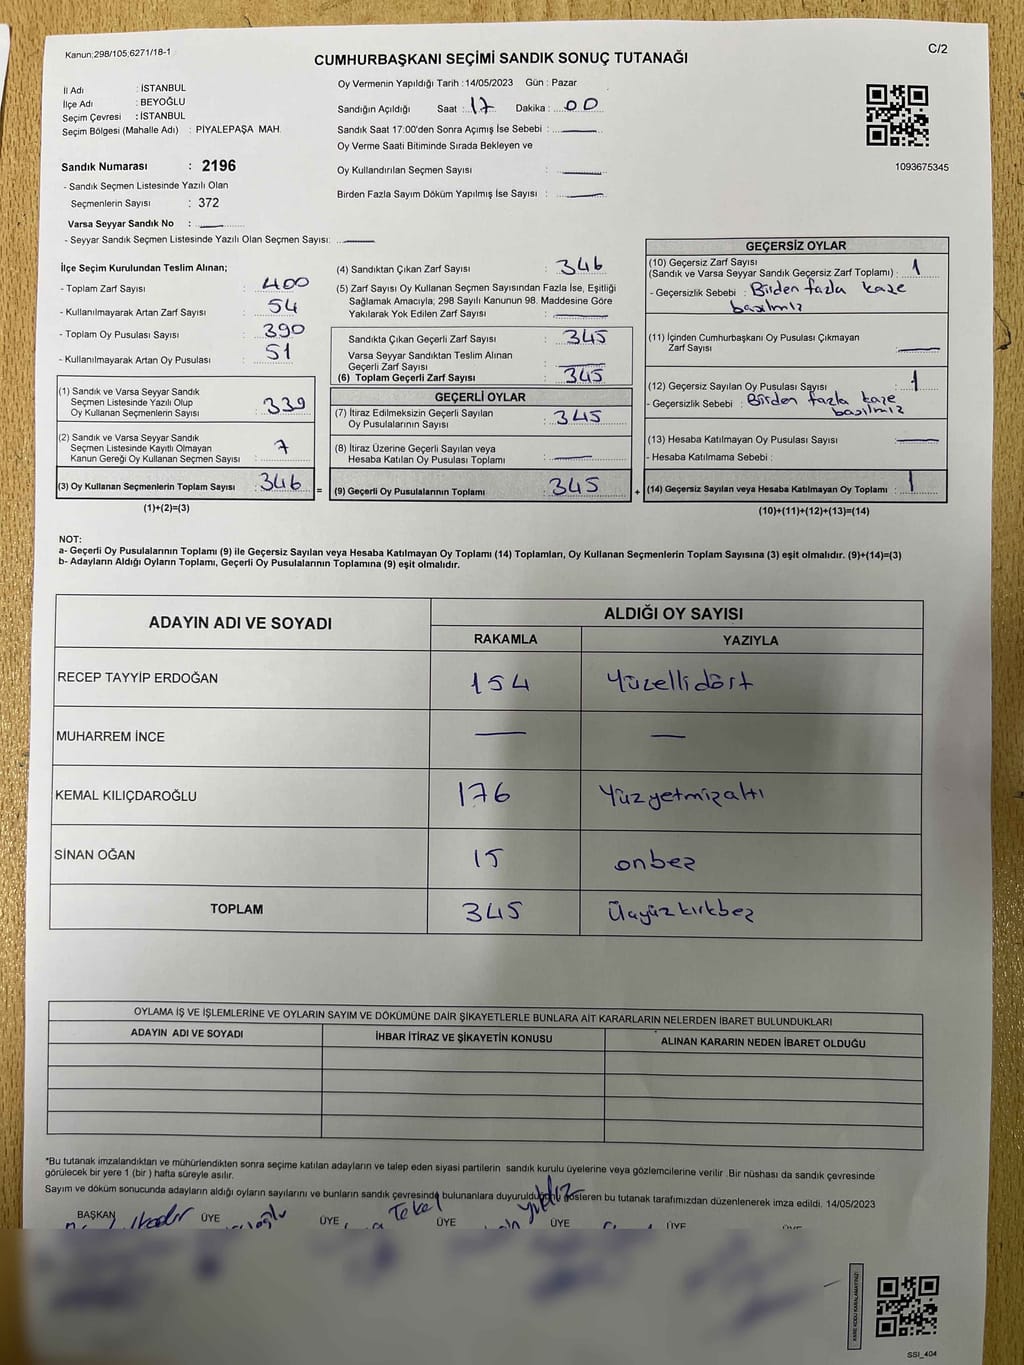 Kanun;298/105;6271/18-1
C/2
CUMHURBAŞKANI SEÇİMİ SANDIK SONUÇ TUTANAĞI
İl Adı : İSTANBUL
İlçe Adı : BEYOĞLU
Seçim Çevresi : İSTANBUL
Seçim Bölgesi (Mahalle Adı) : PİYALEPAŞA MAH.
Sandık Numarası : 2196
- Sandık Seçmen Listesinde Yazılı Olan
Seçmenlerin Sayısı : 372
Varsa Seyyar Sandık No :
- Seyyar Sandık Seçmen Listesinde Yazılı Olan Seçmen Sayısı:
Oy Vermenin Yapıldığı Tarih :14/05/2023 Gün : Pazar
Sandığın Açıldığı Saat : 17 Dakika : 00
Sandık Saat 17:00'den Sonra Açımış İse Sebebi :
Oy Verme Saati Bitiminde Sırada Bekleyen ve
Oy Kullandırılan Seçmen Sayısı :
Birden Fazla Sayım Döküm Yapılmış İse Sayısı :
1093675345
İlçe Seçim Kurulundan Teslim Alınan;
- Toplam Zarf Sayısı : 400
- Kullanılmayarak Artan Zarf Sayısı : 54
- Toplam Oy Pusulası Sayısı : 390
- Kullanılmayarak Artan Oy Pusulası : 51
(1) Sandık ve Varsa Seyyar Sandık
Seçmen Listesinde Yazılı Olup
Oy Kullanan Seçmenlerin Sayısı : 339
(2) Sandık ve Varsa Seyyar Sandık
Seçmen Listesinde Kayıtlı Olmayan
Kanun Gereği Oy Kullanan Seçmen Sayısı : 7
(3) Oy Kullanan Seçmenlerin Toplam Sayısı : 346 =
(1)+(2)=(3)
(4) Sandıktan Çıkan Zarf Sayısı : 346
(5) Zarf Sayısı Oy Kullanan Seçmen Sayısından Fazla İse, Eşitliği
Sağlamak Amacıyla; 298 Sayılı Kanunun 98. Maddesine Göre
Yakılarak Yok Edilen Zarf Sayısı :
Sandıkta Çıkan Geçerli Zarf Sayısı : 345
Varsa Seyyar Sandıktan Teslim Alınan
Geçerli Zarf Sayısı :
(6) Toplam Geçerli Zarf Sayısı : 345
GEÇERLİ OYLAR
(7) İtiraz Edilmeksizin Geçerli Sayılan
Oy Pusulalarının Sayısı : 345
(8) İtiraz Üzerine Geçerli Sayılan veya
Hesaba Katılan Oy Pusulası Toplamı :
(9) Geçerli Oy Pusulalarının Toplamı : 345 +
GEÇERSİZ OYLAR
(10) Geçersiz Zarf Sayısı
(Sandık ve Varsa Seyyar Sandık Geçersiz Zarf Toplamı) : 1
- Geçersizlik Sebebi : Birden fazla kaze
basılmız
(11) İçinden Cumhurbaşkanı Oy Pusulası Çıkmayan
Zarf Sayısı :
(12) Geçersiz Sayılan Oy Pusulası Sayısı : 1
- Geçersizlik Sebebi : Birden fazla kaze
basılmız
(13) Hesaba Katılmayan Oy Pusulası Sayısı :
- Hesaba Katılmama Sebebi :
(14) Geçersiz Sayılan veya Hesaba Katılmayan Oy Toplamı : 1
(10)+(11)+(12)+(13)=(14)
NOT:
a- Geçerli Oy Pusulalarının Toplamı (9) ile Geçersiz Sayılan veya Hesaba Katılmayan Oy Toplamı (14) Toplamları, Oy Kullanan Seçmenlerin Toplam Sayısına (3) eşit olmalıdır. (9)+(14)=(3)
b- Adayların Aldığı Oyların Toplamı, Geçerli Oy Pusulalarının Toplamına (9) eşit olmalıdır.
ADAYIN ADI VE SOYADI ALDIĞI OY SAYISI
RAKAMLA YAZIYLA
RECEP TAYYİP ERDOĞAN 154 Yüzellidört
MUHARREM İNCE
KEMAL KILIÇDAROĞLU 176 Yüzyetmizaltı
SİNAN OĞAN 15 onbez
TOPLAM 345 Üçyüzkırkbez
OYLAMA İŞ VE İŞLEMLERİNE VE OYLARIN SAYIM VE DÖKÜMÜNE DAİR ŞİKAYETLERLE BUNLARA AİT KARARLARIN NELERDEN İBARET BULUNDUKLARI
ADAYIN ADI VE SOYADI İHBAR İTİRAZ VE ŞİKAYETİN KONUSU ALINAN KARARIN NEDEN İBARET OLDUĞU
*Bu tutanak imzalandıktan ve mühürlendikten sonra seçime katılan adayların ve talep eden siyasi partilerin sandık kurulu üyelerine veya gözlemcilerine verilir .Bir nüshası da sandık çevresinde
görülecek bir yere 1 (bir ) hafta süreyle asılır.
Sayım ve döküm sonucunda adayların aldığı oyların sayılarını ve bunların sandık çevresinde bulunanlara duyurulduğunu gösteren bu tutanak tarafımızdan düzenlenerek imza edildi. 14/05/2023
BAŞKAN ÜYE ÜYE Tekel ÜYE Yıldız ÜYE ÜYE
KARE KODU KARALAMAYINIZ!
SSI_404